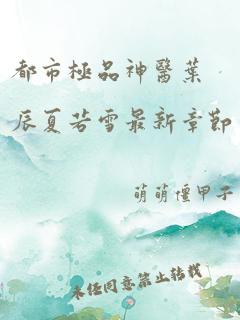 都市極品神醫葉
辰夏若雪最新章節
萌萌僵甲子
未經同意禁止轉載